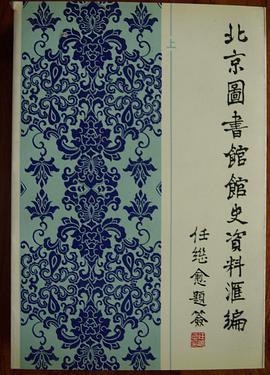 上
北京圖書館館史資料滙編
任继愈題簽